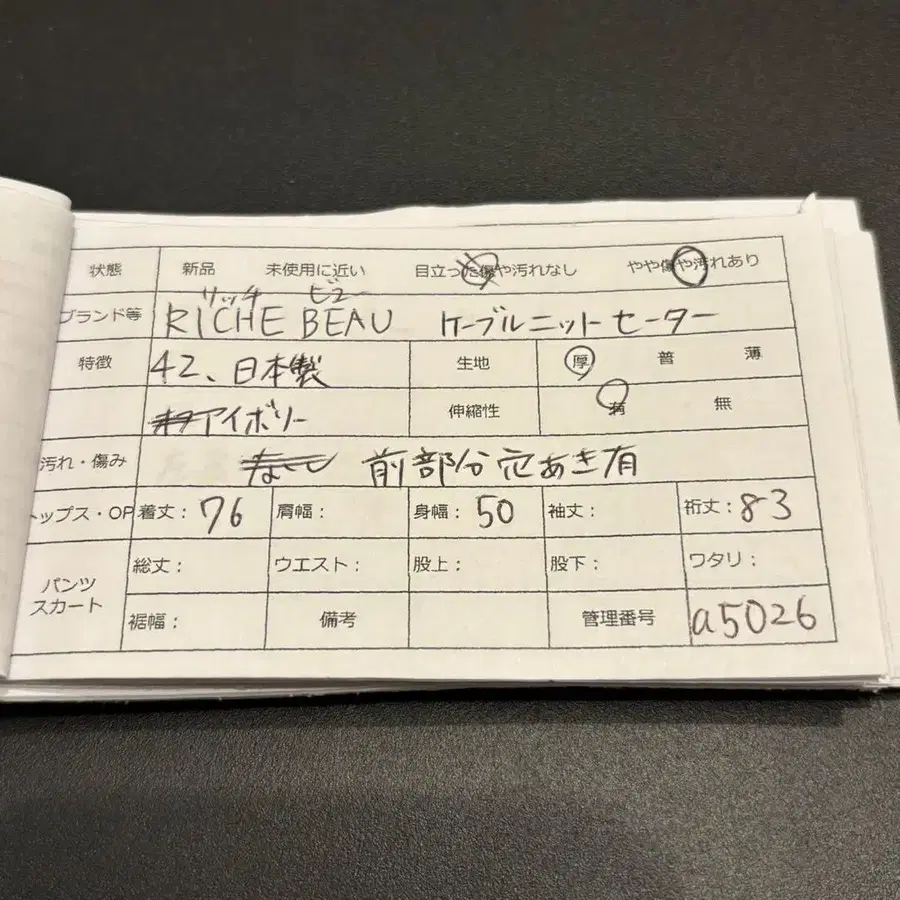 状態 新品 未使用に近い 目立った傷や汚れなし やや傷や汚れあり
リッチ ビュー
ブランド等 RICHE BEAU ケーブルニットセーター
特徴 42、日本製 生地 厚 普 薄
アイボリー 伸縮性 有 無
汚れ・傷み なし 前部分穴あき有
トップス・OP 着丈：76 肩幅： 身幅：50 袖丈： 裄丈：83
パンツ スカート 総丈： ウエスト： 股上： 股下： ワタリ：
裾幅： 備考 管理番号 a5026